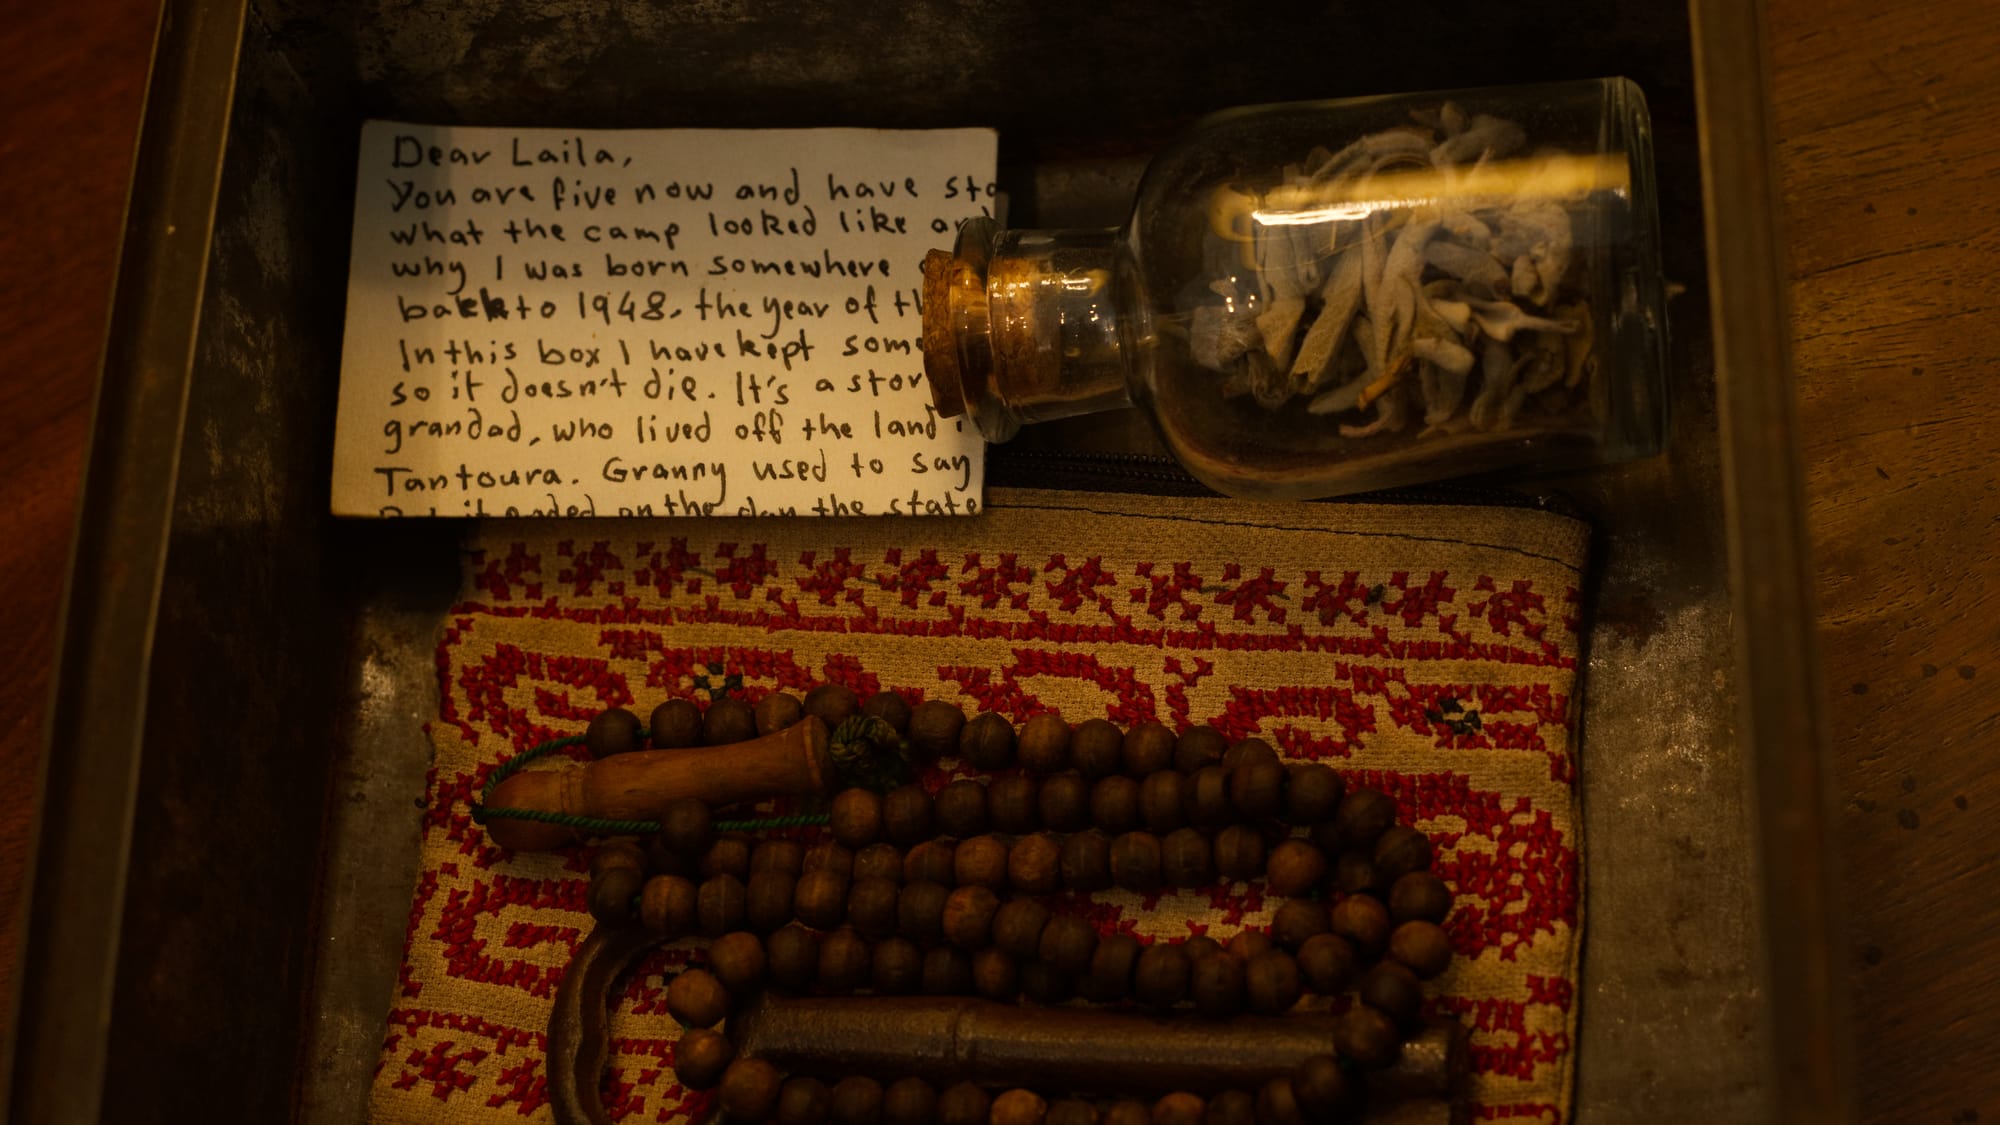 Dear Laila,
You are five now and have
what the camp looked like
why I was born somewhere
back to 1948, the year of
In this box I have kept
so it doesn't die. It's a
grandad, who lived off the land
Tantoura. Granny used to say
it ended on the day the state